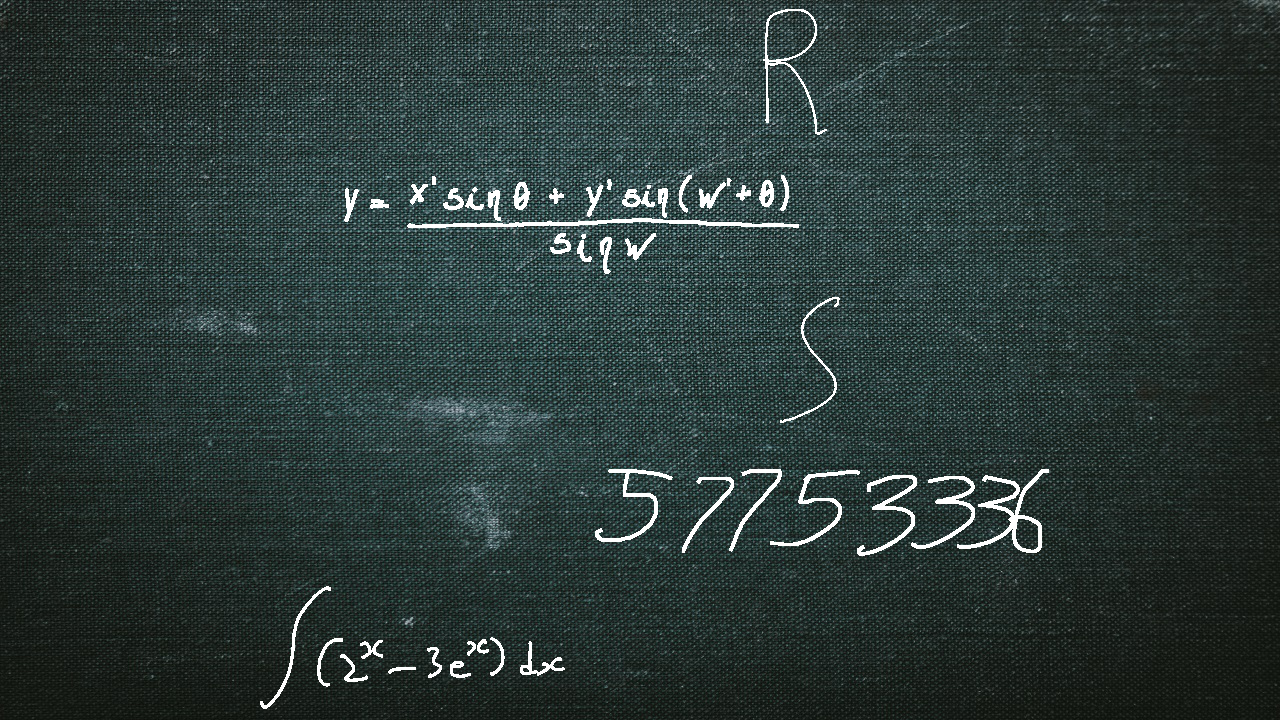 R
y = \frac{x' sin θ + y' sin (w' + θ)}{sin w}
∫
57753336
∫ (2^x - 3e^x) dx